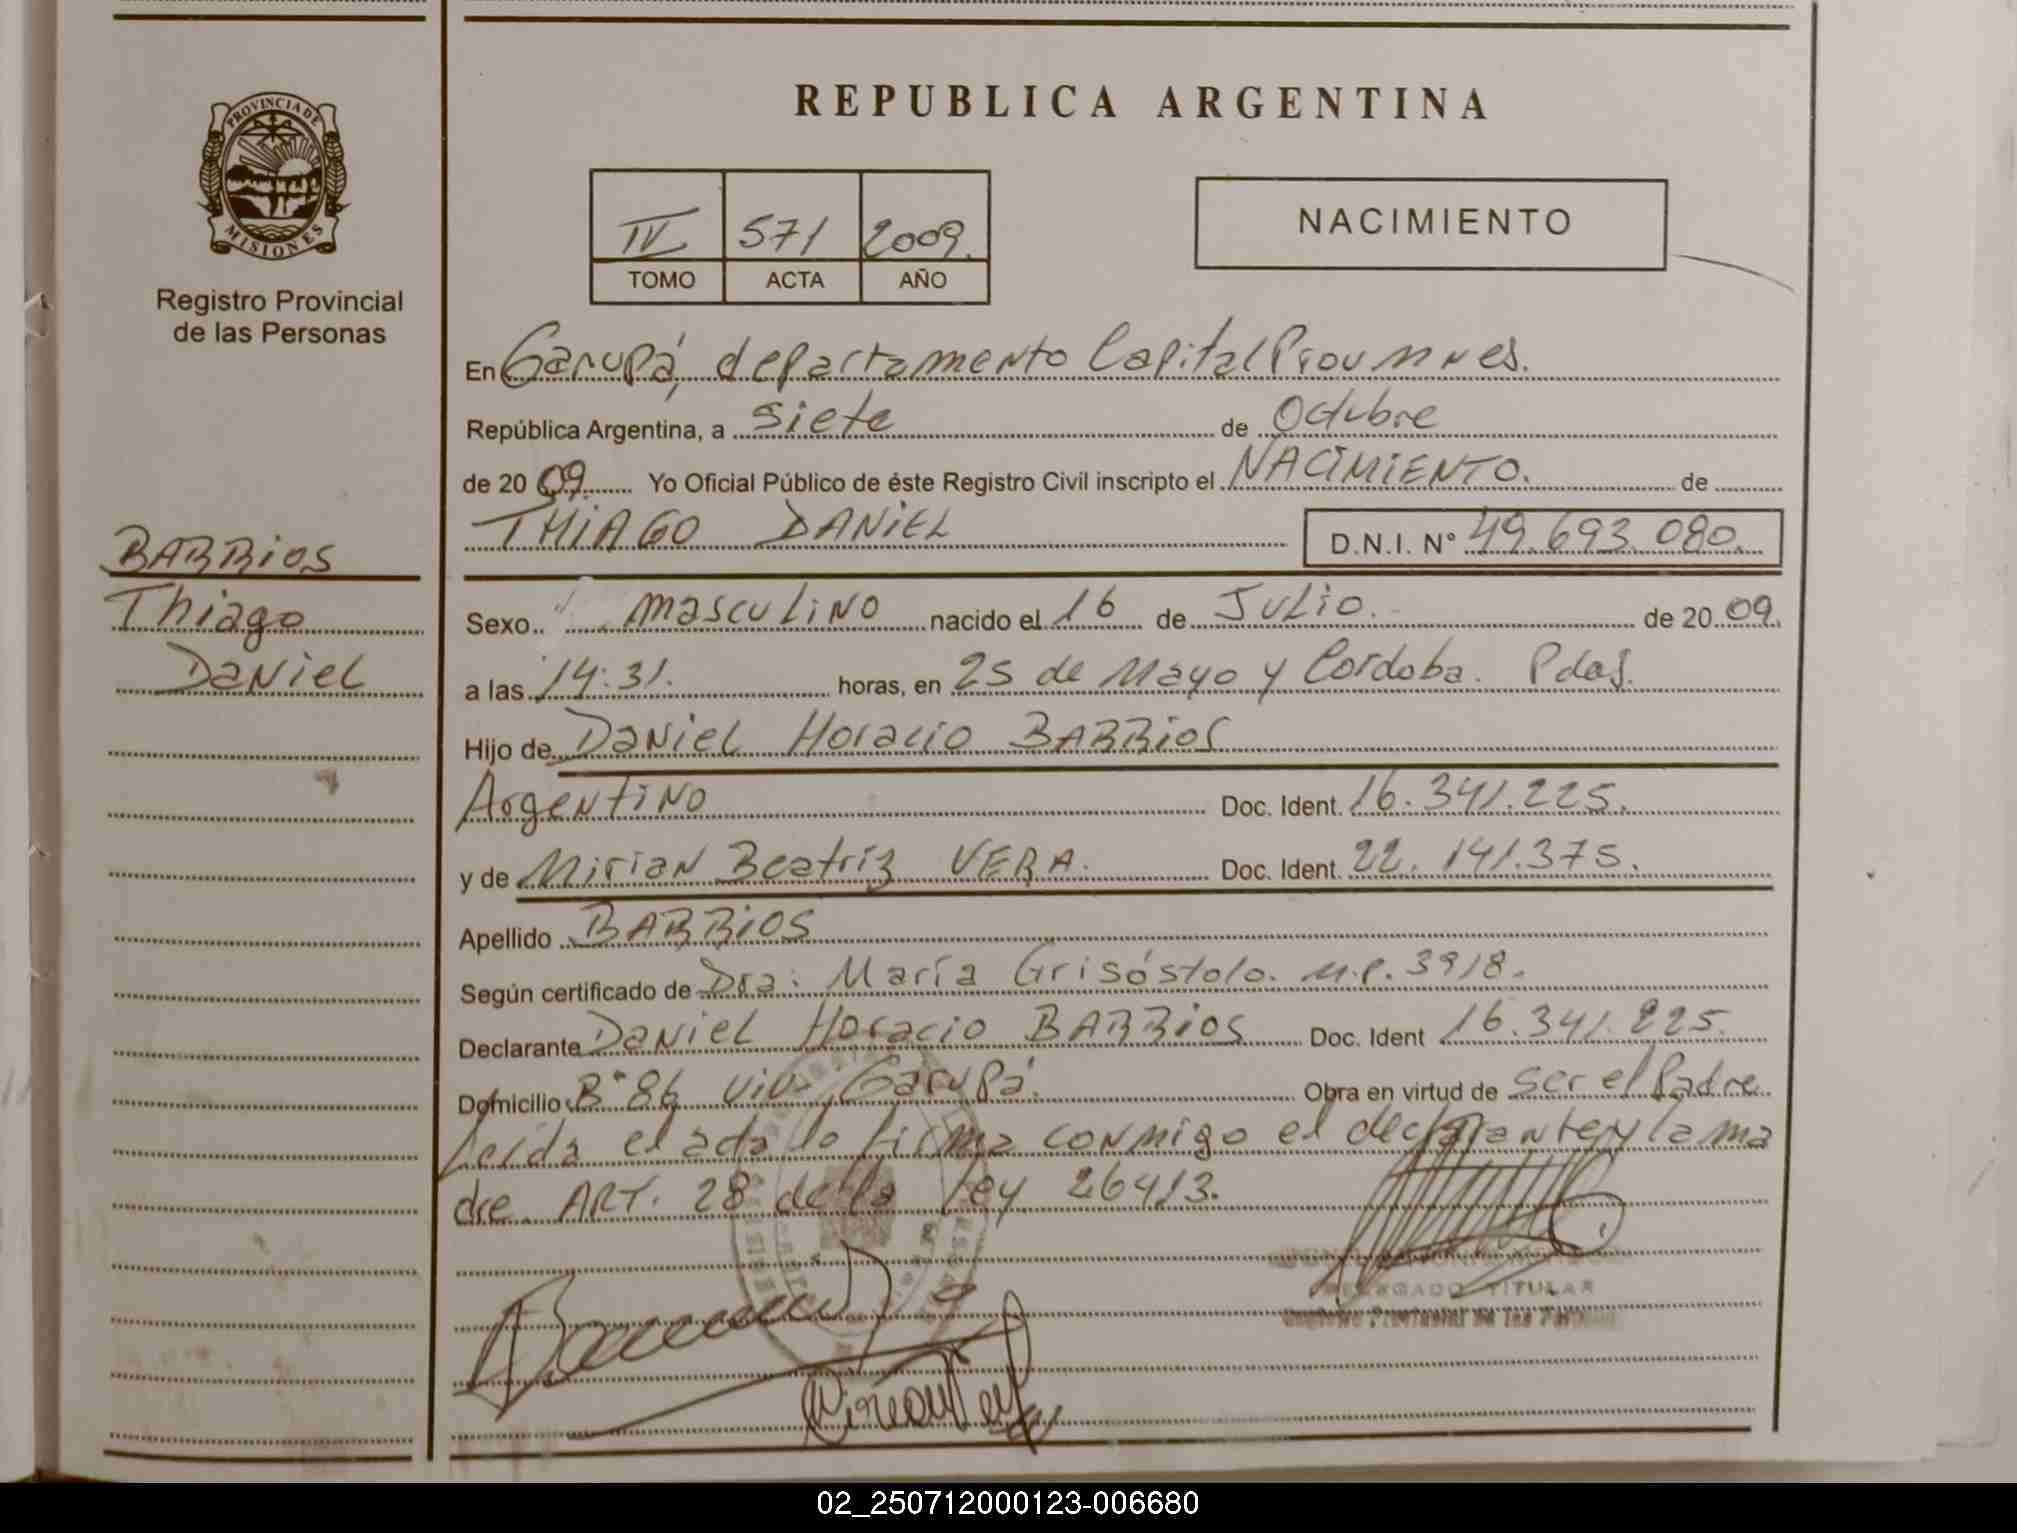 PROVINCIA DE
MISIONES
Registro Provincial
de las Personas
BARRIOS
Thiago
Daniel
REPUBLICA ARGENTINA
IV 571 2009.
TOMO ACTA AÑO
NACIMIENTO
En Garupá, departamento Capital
República Argentina, a siete de Octubre
de 20 09. Yo Oficial Público de éste Registro Civil inscripto el NACIMIENTO. de
THIAGO DANIEL D.N.I. Nº 49.693.080.
Sexo masculino nacido el 16 de Julio. de 20 09.
a las 14:31. horas, en 25 de Mayo y Cordoba. Pdas.
Hijo de Daniel Horacio BARRIOS
Argentino Doc. Ident. 16.341.225.
y de Mirian Beatriz VERA. Doc. Ident. 22.141.375.
Apellido BARRIOS
Según certificado de Dra: María Grisóstolo. M.P. 3918.
Declarante Daniel Horacio BARRIOS Doc. Ident 16.341.225.
Domicilio Bº 86 viv. Garupá. Obra en virtud de ser el Padre
Leída el acta lo firma conmigo el declarante y la ma
dre. ART. 28 de la Ley 26413.
DELEGADO TITULAR
Registro Provincial de las
02_250712000123-006680